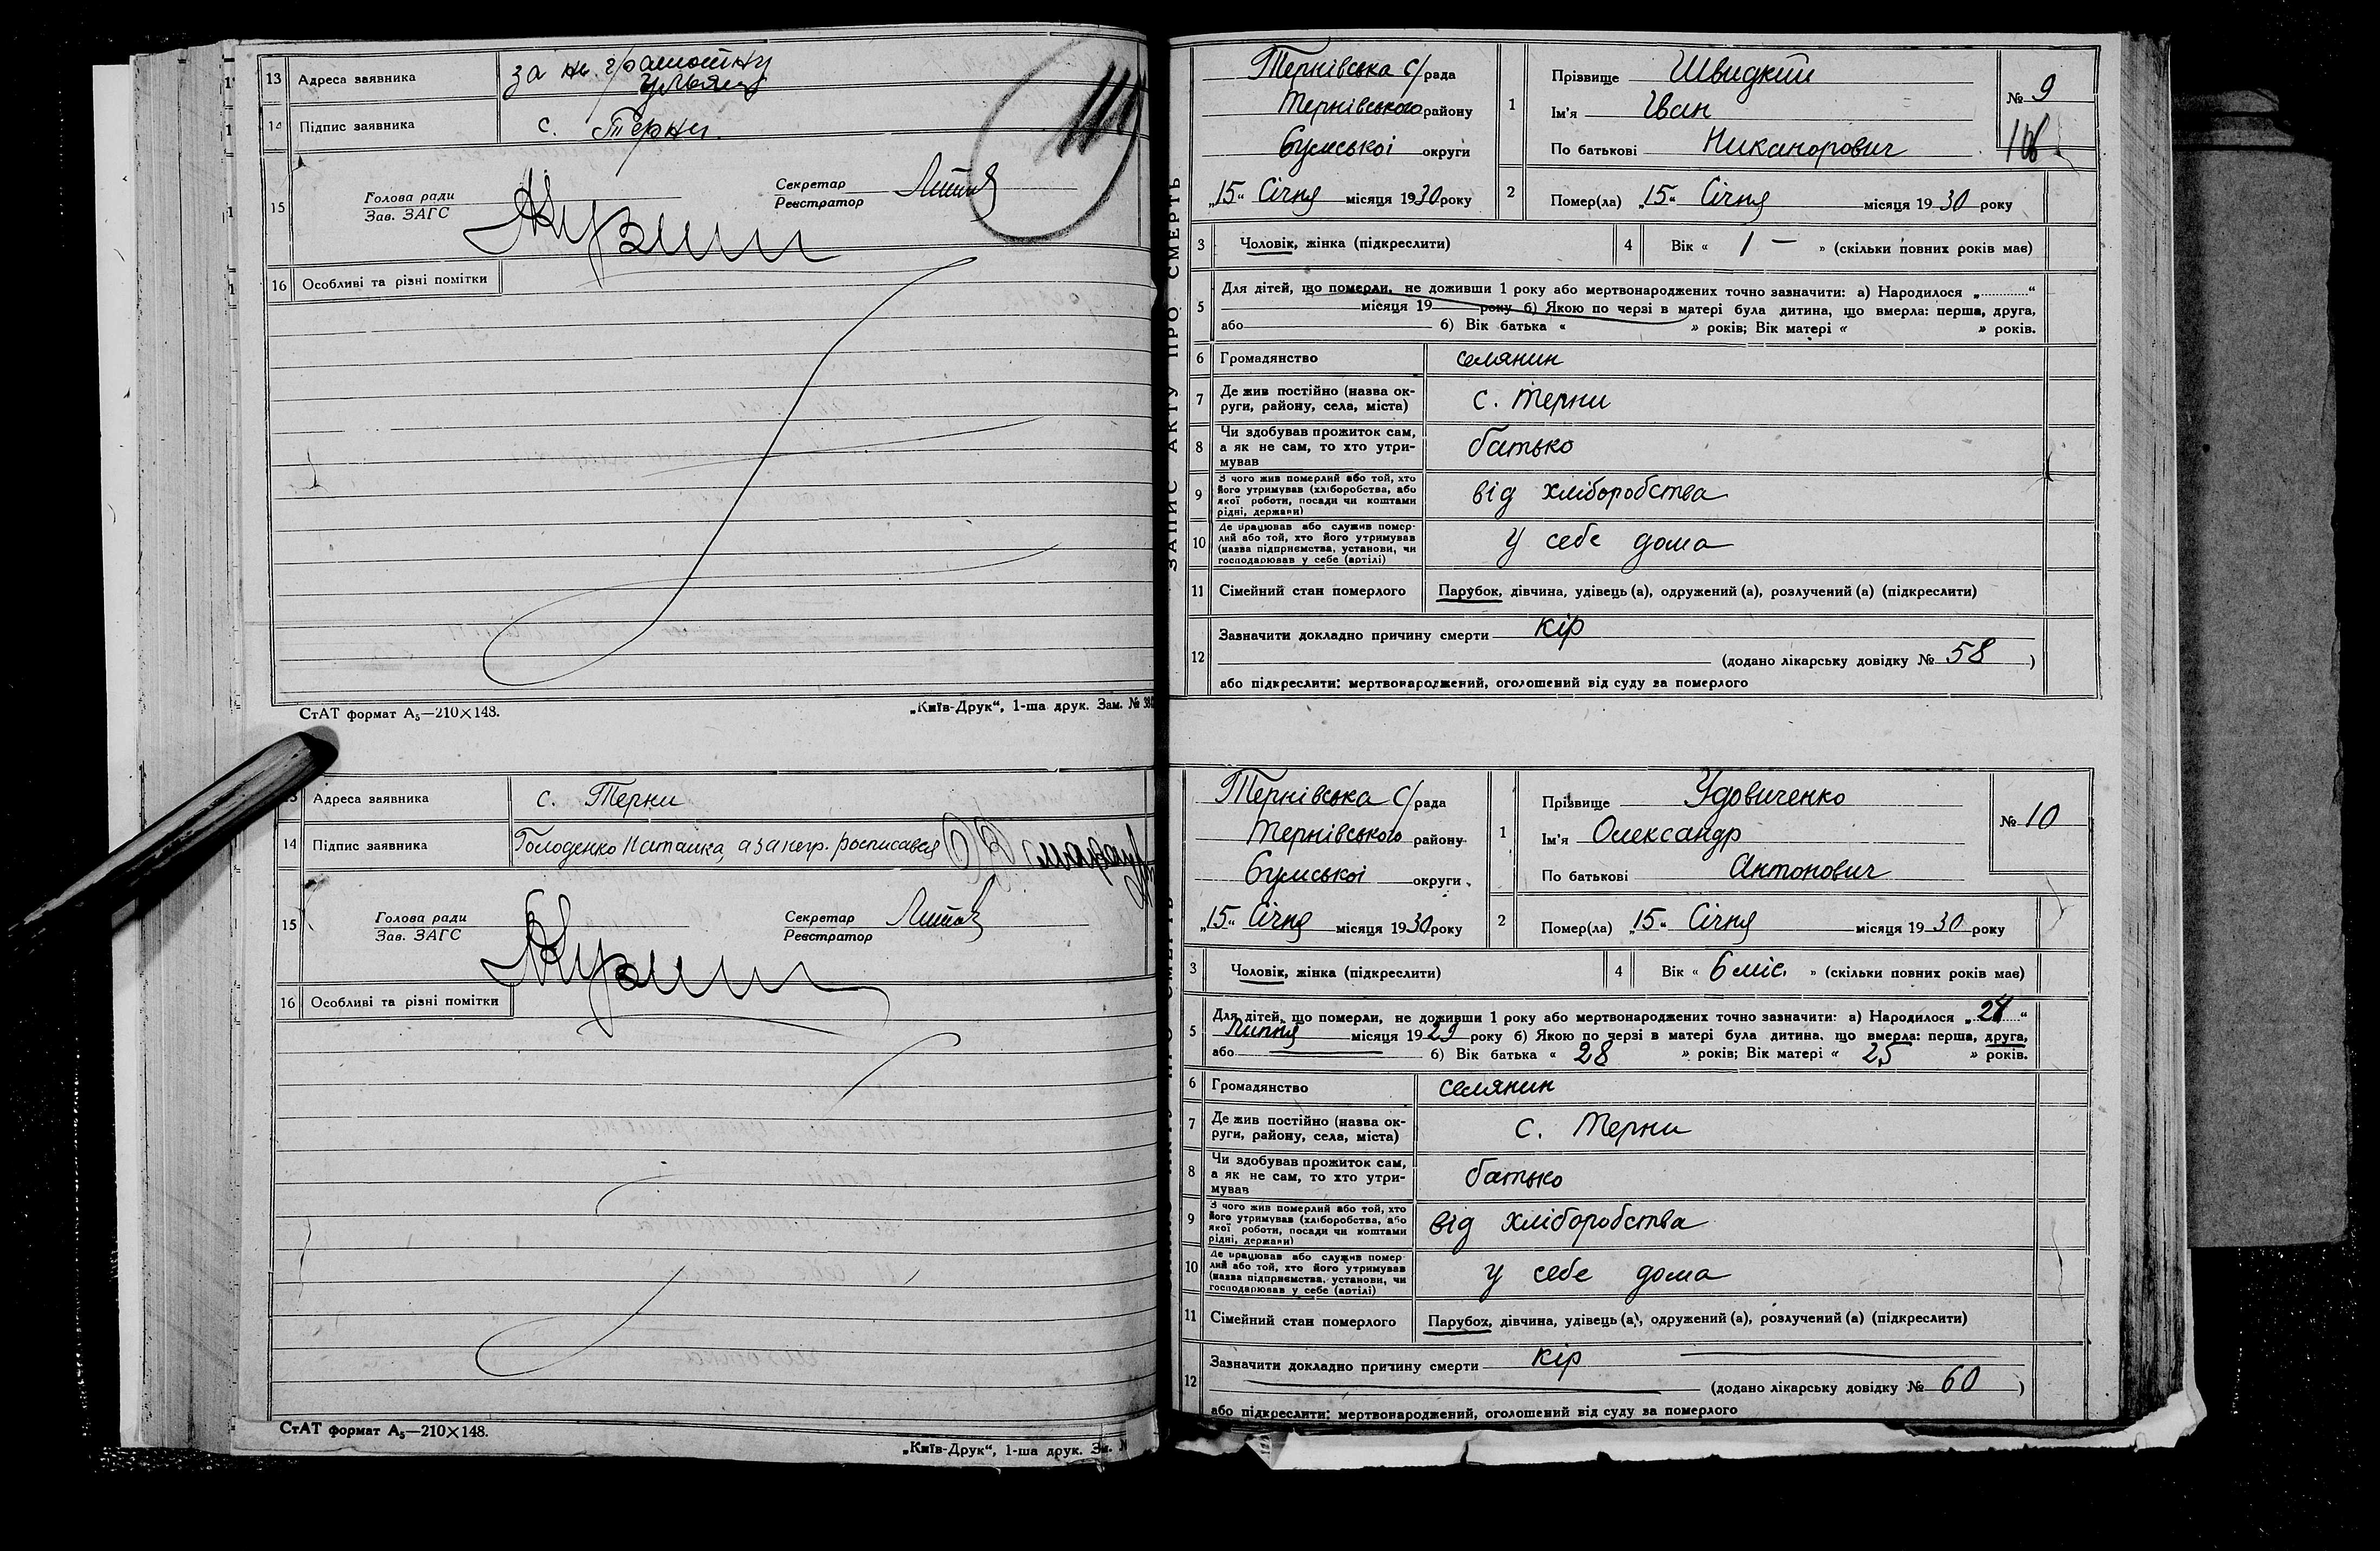 13 Адреса заявника за не грамотну
14 Підпис заявника с. Терни.
15 Голова ради
Зав. ЗАГС
Секретар
Реєстратор
16 Особливі та різні помітки
СтАТ формат А5—210×148.
„Київ-Друк“, 1-ша друк. Зам. №
13 Адреса заявника с. Терни
14 Підпис заявника Голоденко Наталка, а за негр. росписався
15 Голова ради
Зав. ЗАГС
Секретар
Реєстратор
16 Особливі та різні помітки
СтАТ формат А5—210×148.
„Київ-Друк“, 1-ша друк.
ЗАПИС АКТУ ПРО СМЕРТЬ
Тернівська с/рада
Тернівського району
Сумської округи
„15“ Січня місяця 1930 року
1 Прізвище Швидкий
Ім'я Іван
По батькові Никанорович
№ 9
2 Помер(ла) „15“ Січня місяця 1930 року
3 Чоловік, жінка (підкреслити)
4 Вік « 1 — » (скільки повних років має)
5 Для дітей, що померли, не доживши 1 року або мертвонароджених точно зазначити: а) Народилося „............“
місяця 19 року б) Якою по черзі в матері була дитина, що вмерла: перша, друга,
або б) Вік батька « » років; Вік матері « » років.
6 Громадянство селянин
7 Де жив постійно (назва ок-
руги, району, села, міста) с. Терни
8 Чи здобував прожиток сам,
а як не сам, то хто утри-
мував батько
9 З чого жив померлий або той, хто
його утримував (хліборобства, або
якої роботи, посади чи коштами
рідні, держави) від хліборобства
10 Де працював або служив помер-
лий або той, хто його утримував
(назва підприємства, установи, чи
господарював у себе (артілі) у себе дома
11 Сімейний стан померлого Парубок, дівчина, удівець (а), одружений (а), розлучений (а) (підкреслити)
12 Зазначити докладно причину смерти кір
(додано лікарську довідку № 58 )
або підкреслити: мертвонароджений, оголошений від суду за померлого
Тернівська с/рада
Тернівського району
Сумської округи
„15“ Січня місяця 1930 року
1 Прізвище Удовиченко
Ім'я Олександр
По батькові Антонович
№ 10
2 Помер(ла) „15“ Січня місяця 1930 року
3 Чоловік, жінка (підкреслити)
4 Вік « 6 міс. » (скільки повних років має)
5 Для дітей, що померли, не доживши 1 року або мертвонароджених точно зазначити: а) Народилося „ “
Липня місяця 1929 року б) Якою по черзі в матері була дитина, що вмерла: перша, друга,
або б) Вік батька « 28 » років; Вік матері « 25 » років.
6 Громадянство селянин
7 Де жив постійно (назва ок-
руги, району, села, міста) с. Терни
8 Чи здобував прожиток сам,
а як не сам, то хто утри-
мував батько
9 З чого жив померлий або той, хто
його утримував (хліборобства, або
якої роботи, посади чи коштами
рідні, держави) від хліборобства
10 Де працював або служив помер-
лий або той, хто його утримував
(назва підприємства, установи, чи
господарював у себе (артілі) у себе дома
11 Сімейний стан померлого Парубок, дівчина, удівець (а), одружений (а), розлучений (а) (підкреслити)
12 Зазначити докладно причину смерти кір
(додано лікарську довідку № 60 )
або підкреслити: мертвонароджений, оголошений від суду за померлого